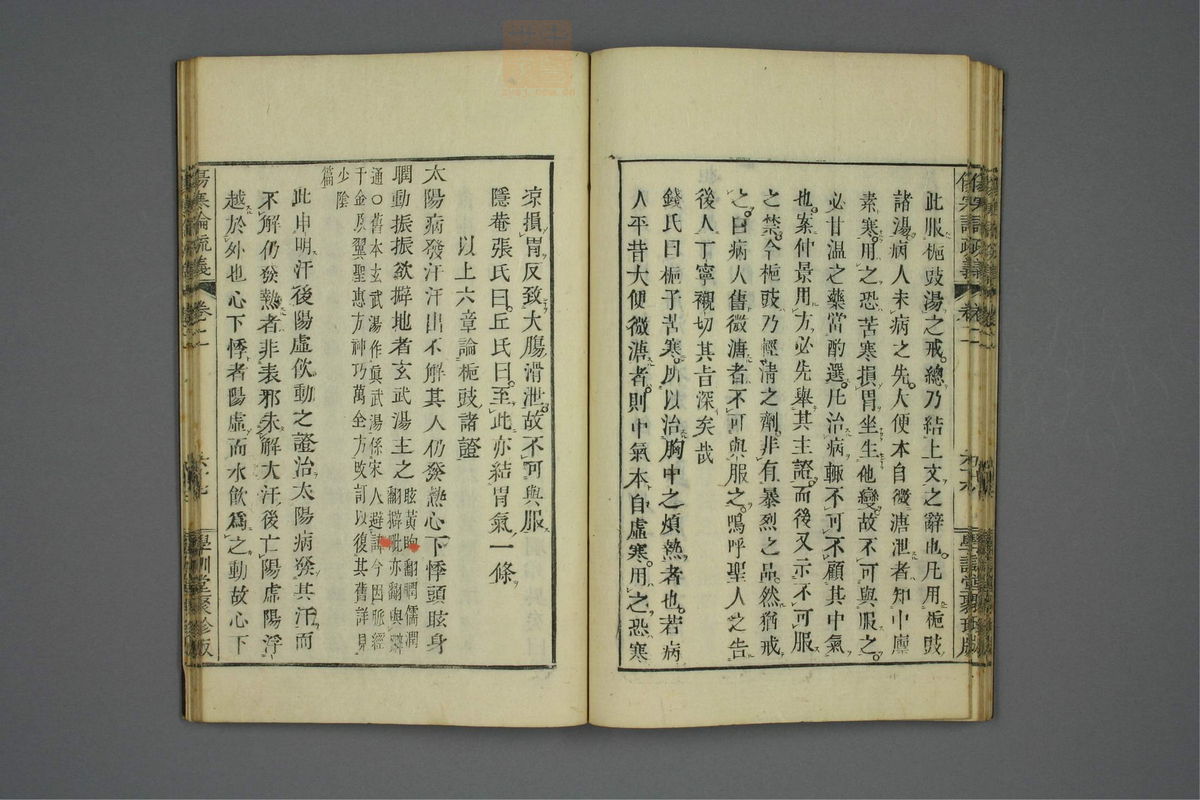 此服梔豉湯之戒總乃結上文之辭也凡用梔豉
諸湯病人未病之先大便本自微溏泄者知中廩
素寒用之恐苦寒損胃坐生他變故不可與服之
必甘溫之藥當酌選凡治病輒不可不顧其中氣
也案仲景用方必先舉其主證而後又示不可服
之禁今梔豉乃輕淸之劑非有暴烈之品然猶戒
之曰病人舊微溏者不可與服之嗚呼聖人之告
後人丁寧襯切其旨深矣哉
錢氏曰梔子苦寒所以治胸中之煩熱者也若病
人平昔大便微溏者則中氣本自虛寒用之恐寒
涼損胃反致大腸滑泄故不可與服
隱菴張氏曰丘氏曰至此亦結胃氣一條
以上六章論梔豉諸證
太陽病發汗汗出不解其人仍發熱心下悸頭眩身
瞤動振振欲擗地者玄武湯主之眩黃眴翻瞤儒潤翻擗毗亦翻與躃
通○舊本玄武湯作眞武湯係宋人避諱今因脈經千金及翼聖惠方神巧萬全方改訂以復其舊詳見
少陰篇
此申明汗後陽虛飮動之證治太陽病發其汗而
不解仍發熱者非表邪未解大汗後亡陽虛陽浮
越於外也心下悸者陽虛而水飮爲之動故心下
傷寒論疏義
卷二
六七
學訓堂聚珍版